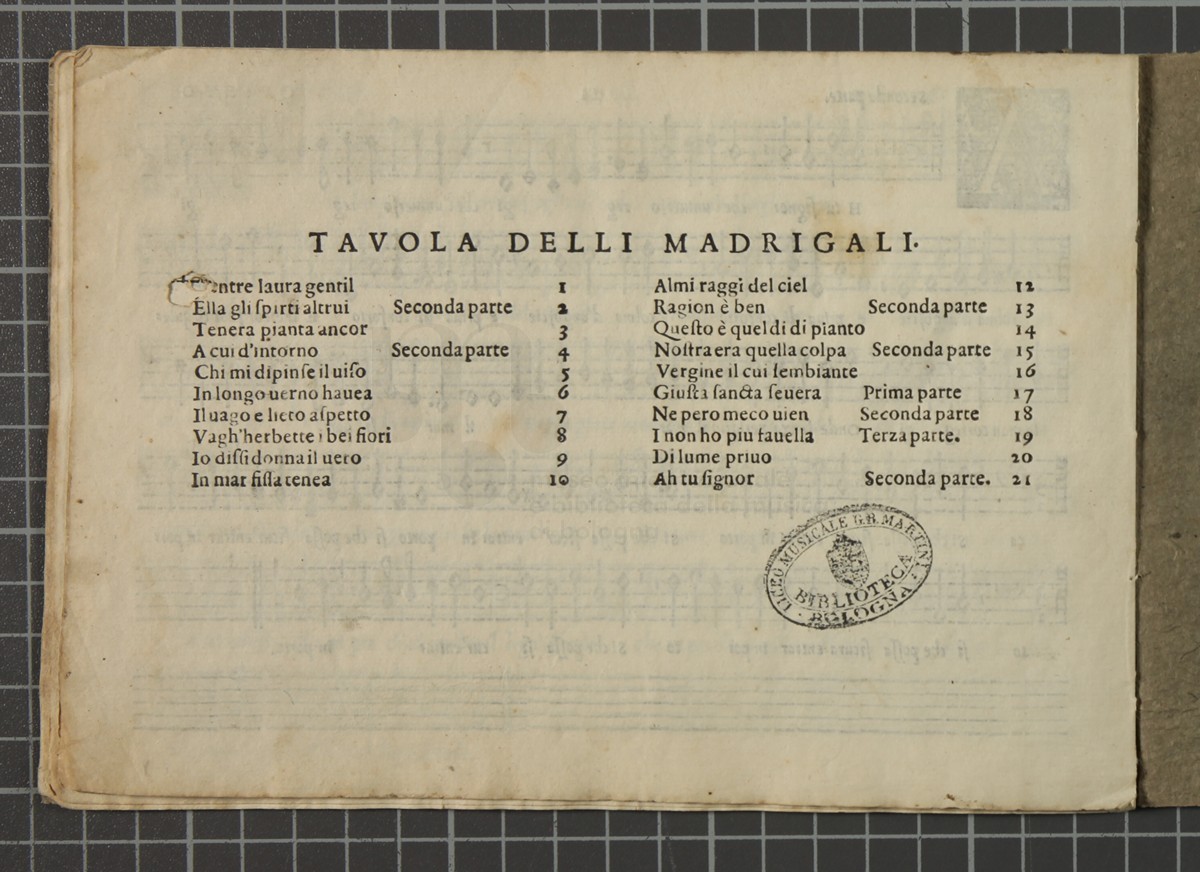 TAVOLA DELLI MADRIGALI.
laura gentil 1
Ella gli ſpirti altrui Seconda parte 2
Tenera pianta ancor 3
A cui d'intorno Seconda parte 4
Chi mi dipinſe il uiſo 5
In longo uerno hauea 6
Il uago e lieto aſpetto 7
Vagh'herbette i bei fiori 8
Io diſſi donna il uero 9
In mar fiſſa tenea 10
Almi raggi del ciel 12
Ragion è ben Seconda parte 13
Queſto è quel di di pianto 14
Noſtra era quella colpa Seconda parte 15
Vergine il cui ſembiante 16
Giuſta ſancta ſeuera Prima parte 17
Ne pero meco uien Seconda parte 18
I non ho piu fauella Terza parte. 19
Di lume priuo 20
Ah tu ſignor Seconda parte. 21
LICEO MUSICALE G.B. MARTINI
BIBLIOTECA
BOLOGNA